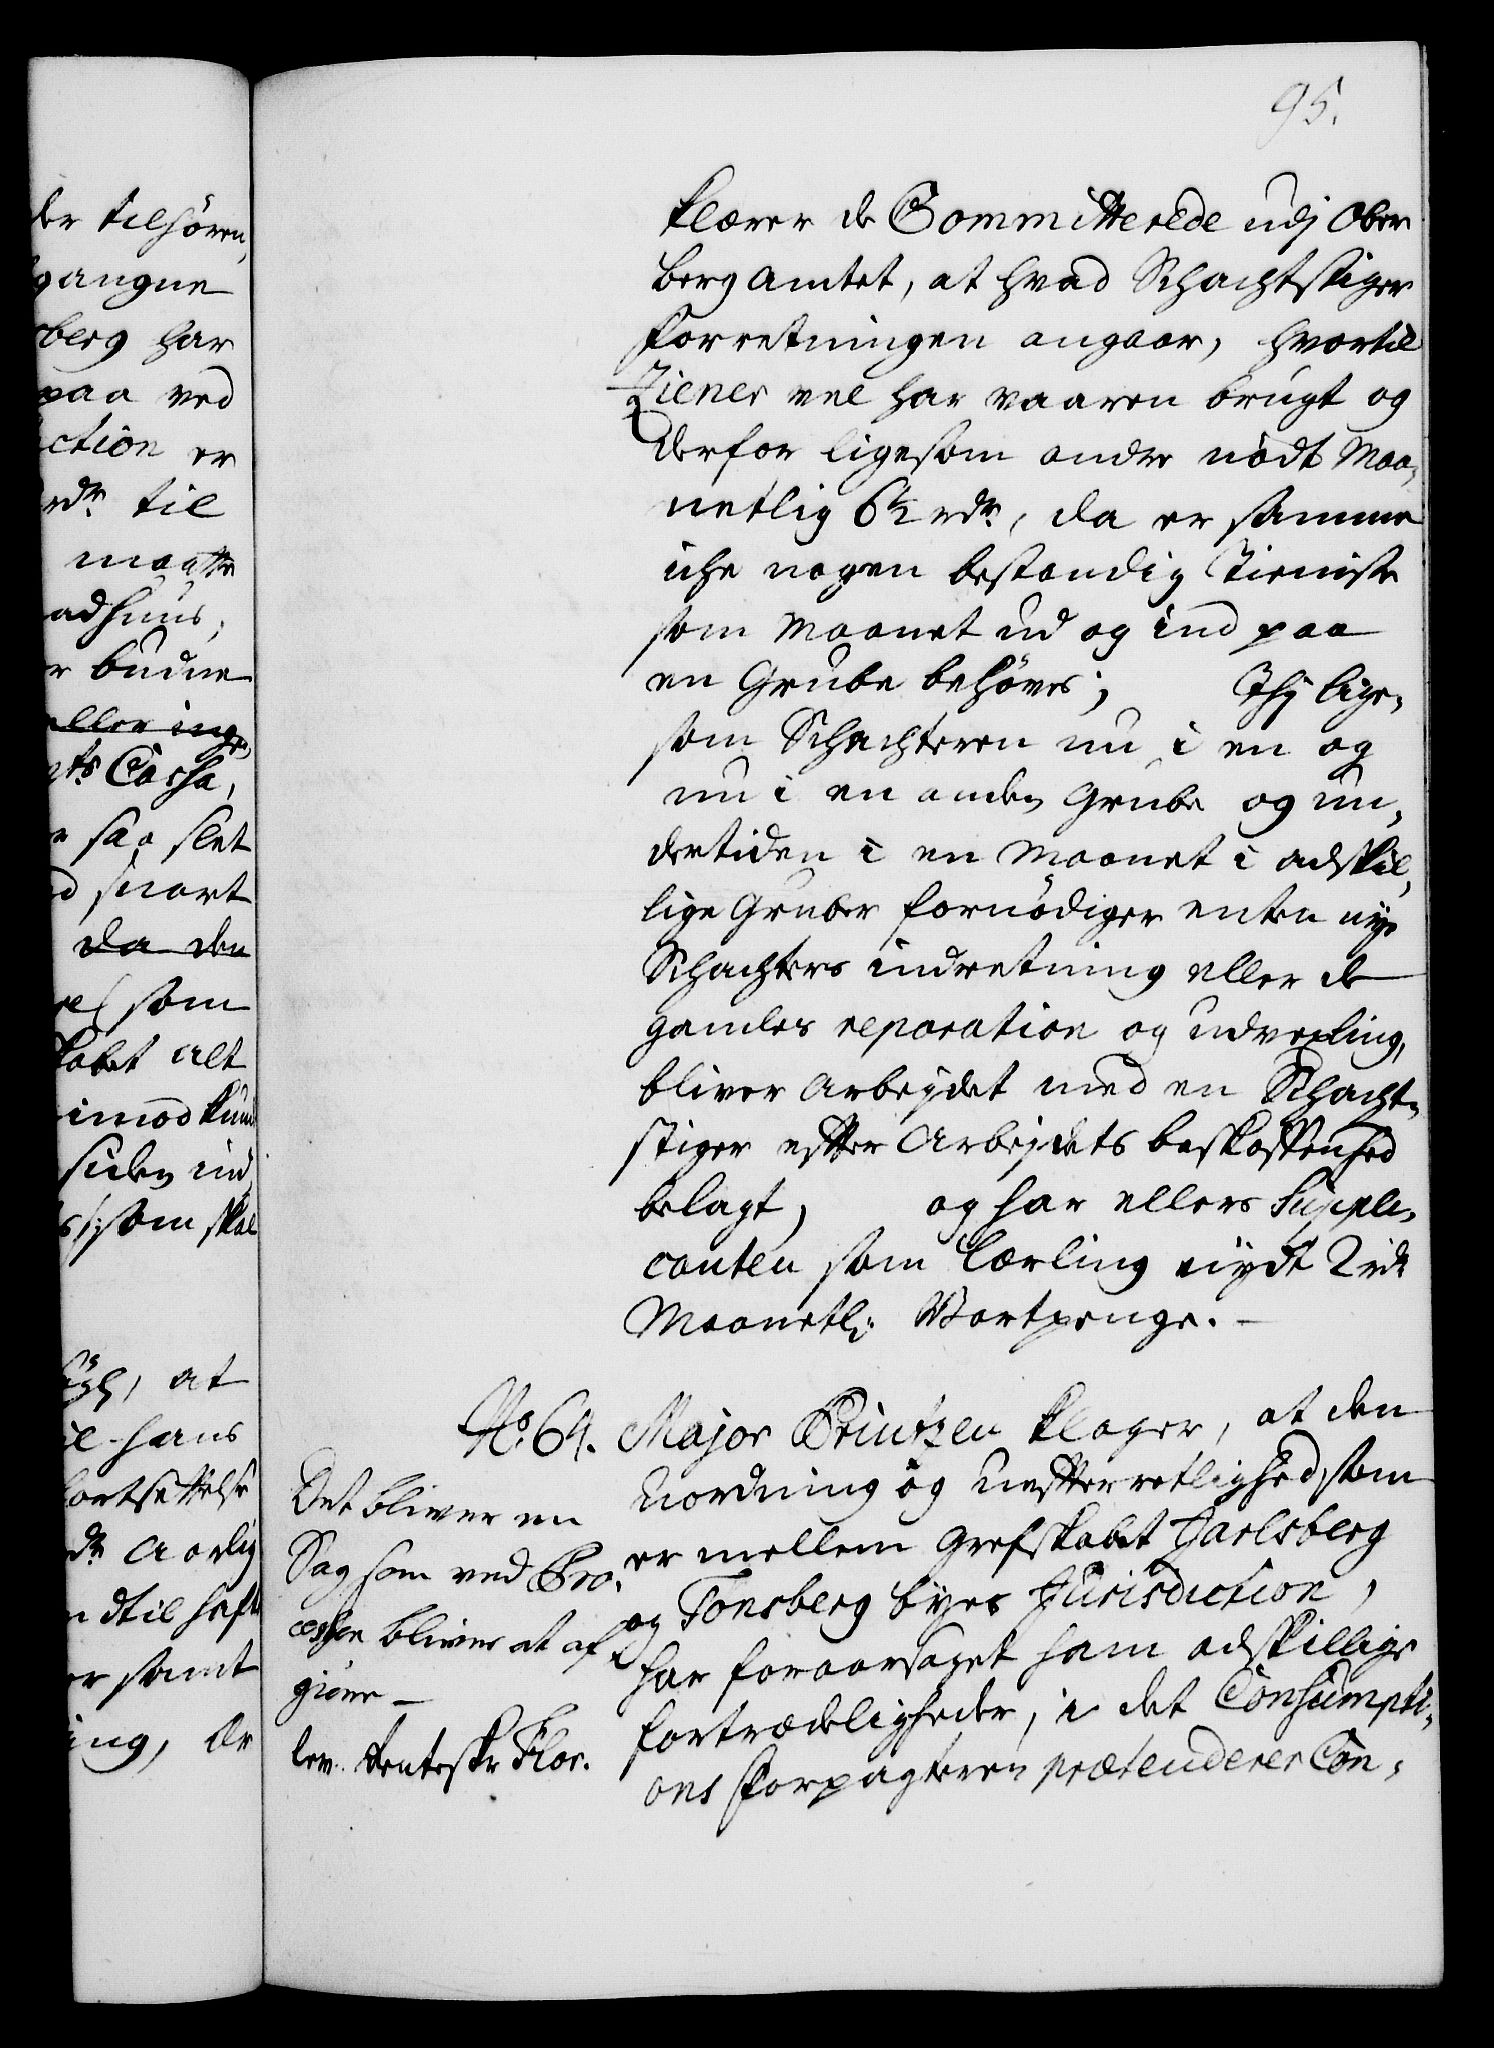 95.
klærer de Committerede udj Ober
berg Amtet, at hvad Schachtstiger
forretningen angaar, hvortil
Ziener vel har vaaren brugt og
derfor ligesom andre nødt Maa-
netlig 6½ rdr, da er samme
iche nogen bestandig Tieniste
som Maanet ud og ind paa
en Grube behøves; Thj lige-
som Schachteren nu i en og
nu i en anden Grube og un-
dertiden i en Maanet i adskil-
lige Gruber fornödiger enten nye
Schachters indretning eller de
gamles reparation og udvexling,
bliver Arbejdet med en Schacht-
stiger effter Arbejdets beskaffenhed
belagt, og har ellers Suppli-
canten som Lærling nydt 2 rdr
Maanetl: Wartpenge. -
No. 64. Major Printzen klager, at den
Uordning og Uefterretlighed, som
er mellem Grefskabet Jarlsberg
og Tonsberg byes Jurisdiction,
har foraarsaget ham adskillige
fortrædeligheder, i det Consumpti-
ons forpagteren prætenderer Con-
Det bliver en
Sag som ved Pro-
cessen bliver at af-
giøre -
lev. Renteskr Flor.
der tilhören,
gangne
berg har
paa ved
ction er
rdr til
maatte
adhuus,
r budne
eller inge
ts Cassa,
saa slet
d snart
da den
som
kabet alt
imod kun
siden ind
som skal
at
hans
fortsettelse
dr Aarlig
dtil haft
er samt
ing, de